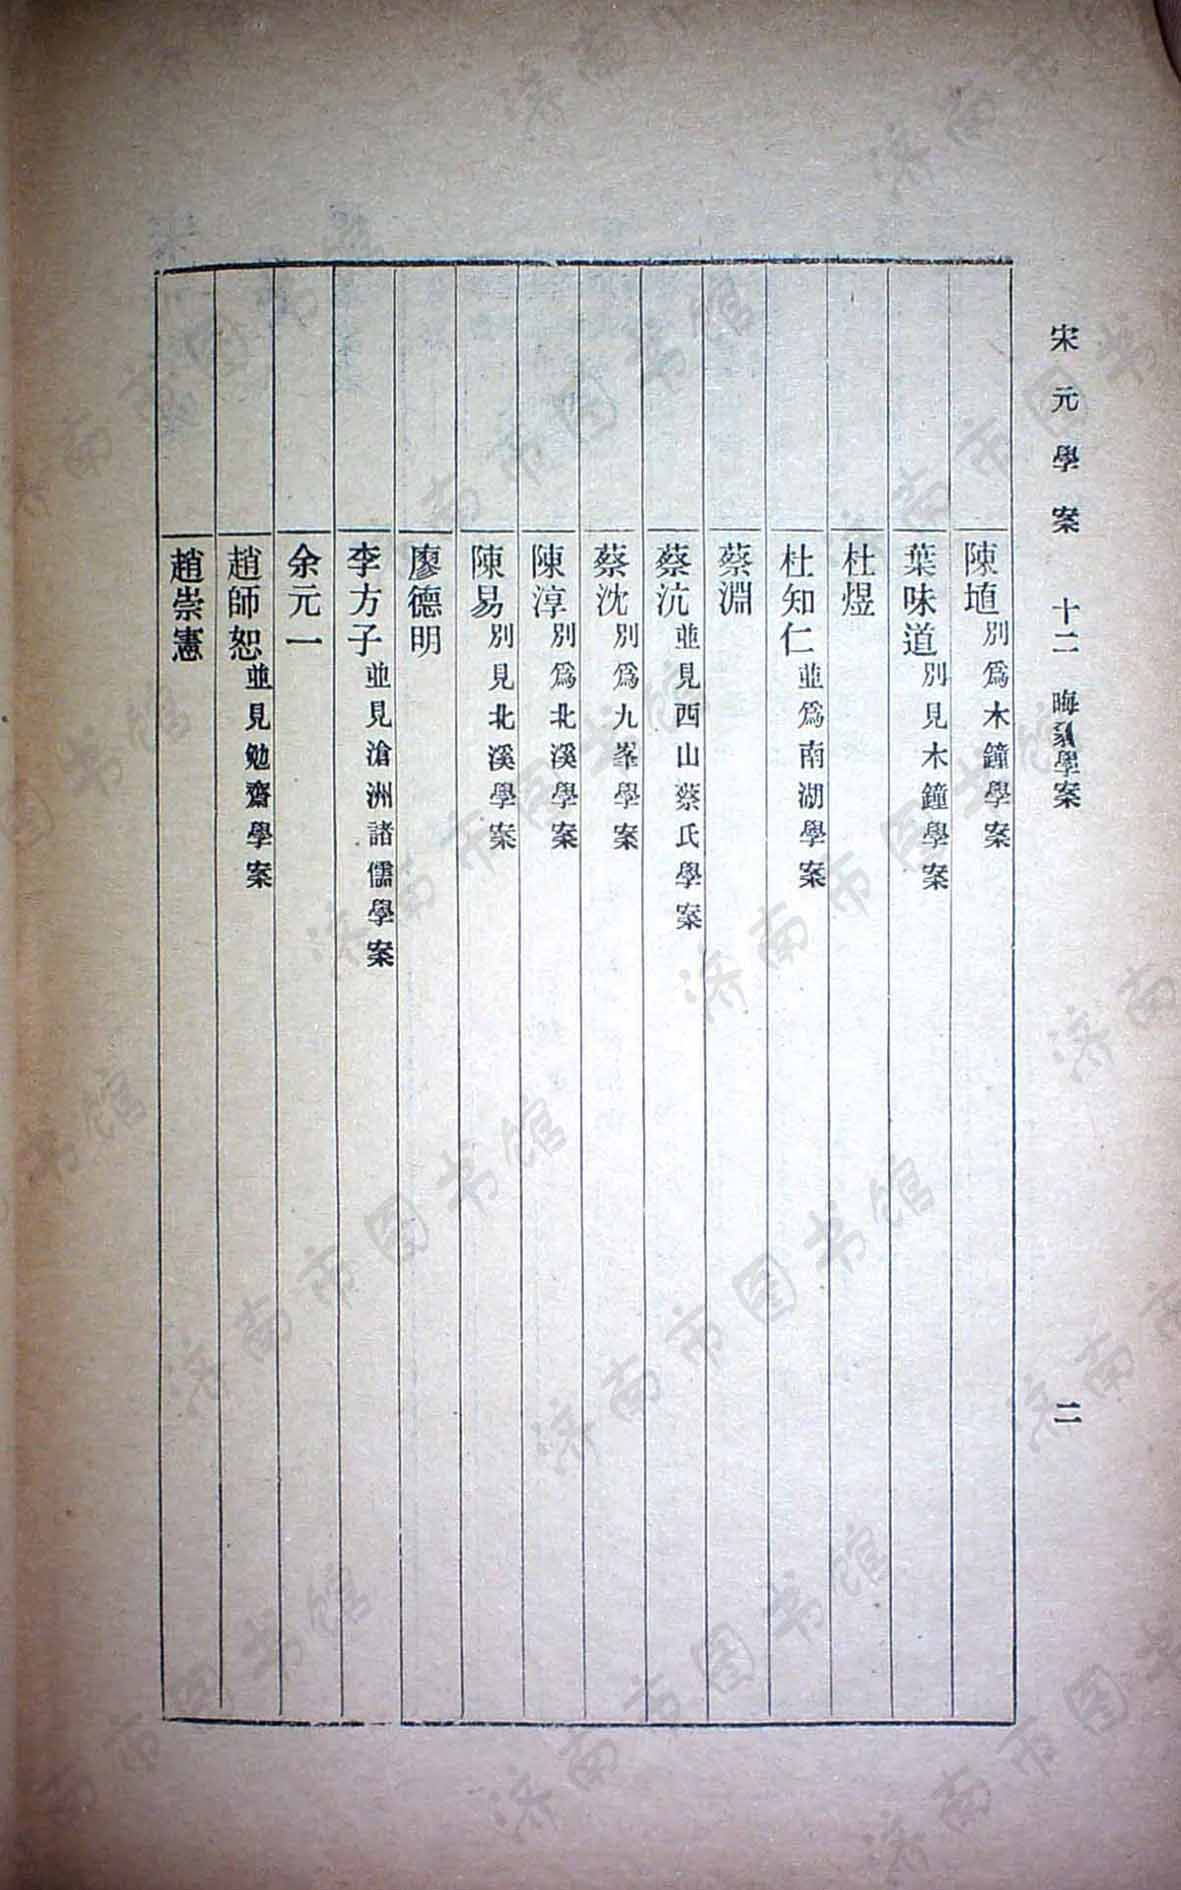 宋元學案 十二 晦翁學案 二
陳埴別爲木鐘學案
葉味道別見木鐘學案
杜煜
杜知仁並爲南湖學案
蔡淵
蔡沆並見西山蔡氏學案
蔡沈別爲九峯學案
陳淳別爲北溪學案
陳易別見北溪學案
廖德明
李方子並見滄洲諸儒學案
余元一
趙師恕並見勉齋學案
趙崇憲
济南市图书馆